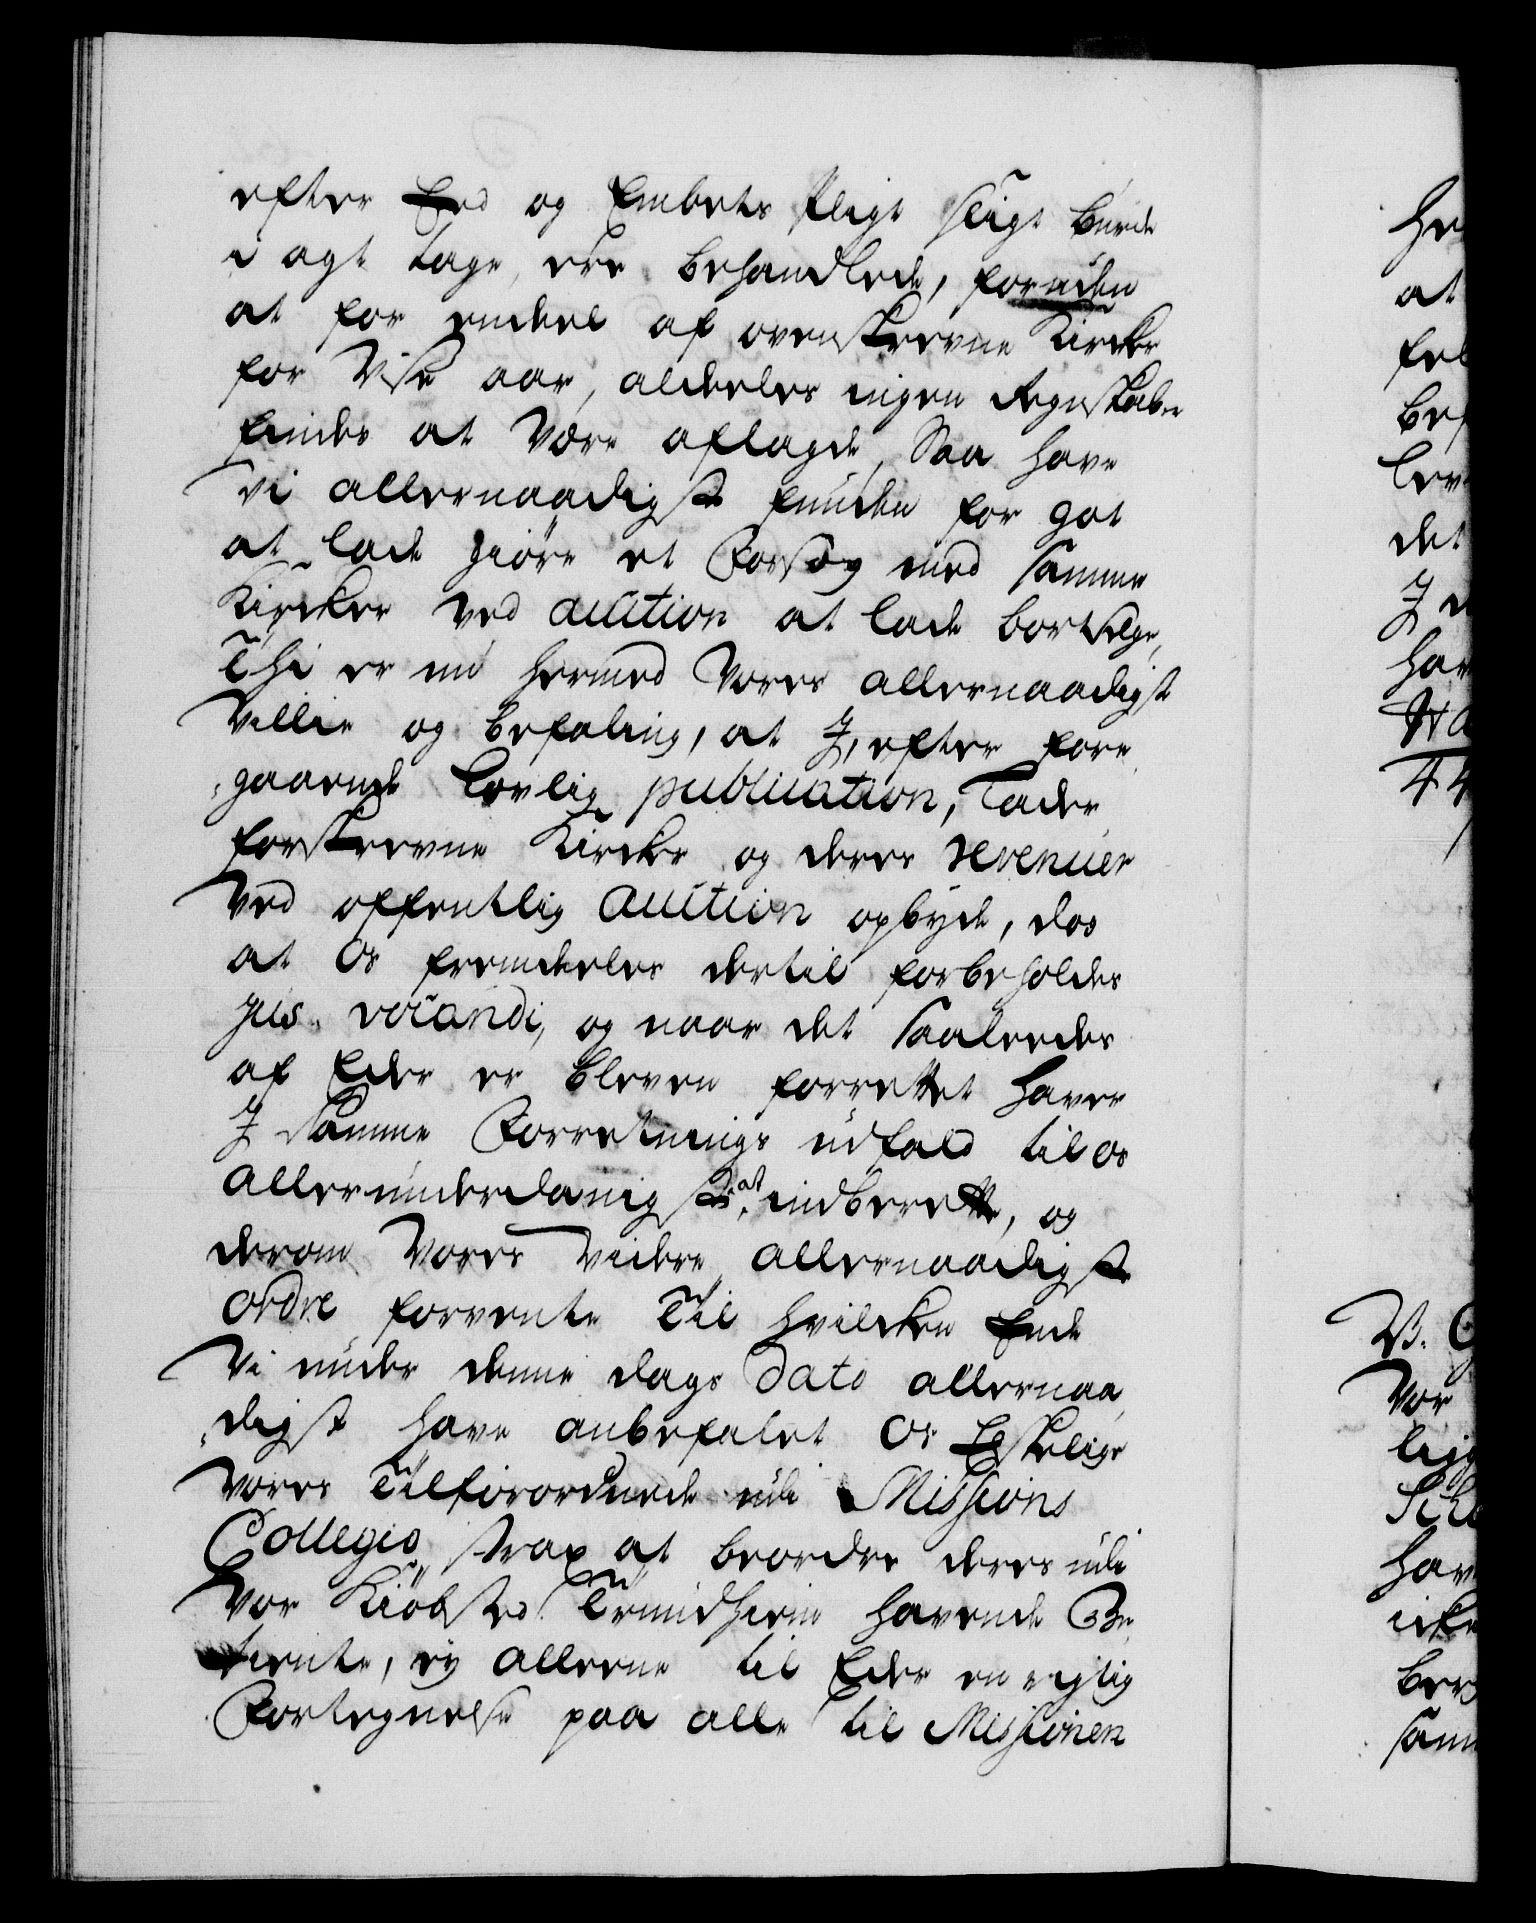 efter Eed og Embets Pligt sligt burde
i agt tage, ere behandlede, foruden
at for endeel af ovenskrevne Kircker
for Visse aar, aldeeles ingen Regnskaber
findes at være aflagde, Saa have
Vi allernaadigst funden for got
at lade giøre et Forsøg med samme
Kircker ved auction at lade bortselge,
Thi er nu hermed Vores allernaadigst
Villie og befaling, at J, efter fore
gaaende lovlig publication, lader
forskrevne Kircker og deres revenuer
Ved offentlig Auction opbyde, dog
at Os fremdeeles dertil forbeholdes
jus vocandi, og naar det saaleedes
af Eder er bleven forrettet haver
J samme Forretnings udfald til os
allerunderdanigst at indberette, og
derom Vores videre allernaadigste
ordre forvente Til hvilcken Ende
Vi under denne dags Dato allernaa
digst have anbefalet Os Elskelige
Vores Tilforordnede udi Missions
Collegio strax at beordre deres udi
Vor Kiøbsted Trundhiem havende Be
tiente, ey alleene til Eder en rigtig
Fortegnelse paa alle til Missionen
he
at
bef
det
J
hav
44
V.
Vor
hav
ber